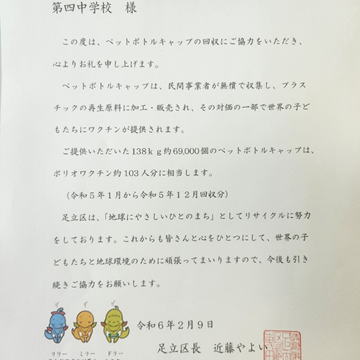 第四中学校　様
この度は、ペットボトルキャップの回収にご協力をいただき、
心よりお礼を申し上げます。
ペットボトルキャップは、民間事業者が無償で収集し、プラス
チックの再生原料に加工・販売され、その対価の一部で世界の子ど
もたちにワクチンが提供されます。
ご提供いただいた138kg約69,000個のペットボトルキャップは、
ポリオワクチン約103人分に相当します。
（令和5年1月から令和5年12月回収分）
足立区は、「地球にやさしいひとのまち」としてリサイクルに努力
をしております。これからも皆さんと心をひとつにして、世界の子
どもたちと地球環境のために頑張ってまいりますので、今後も引き
続きご協力をお願いします。
令和6年2月9日
足立区長　近藤やよい
リリー　ミリー　ドリー